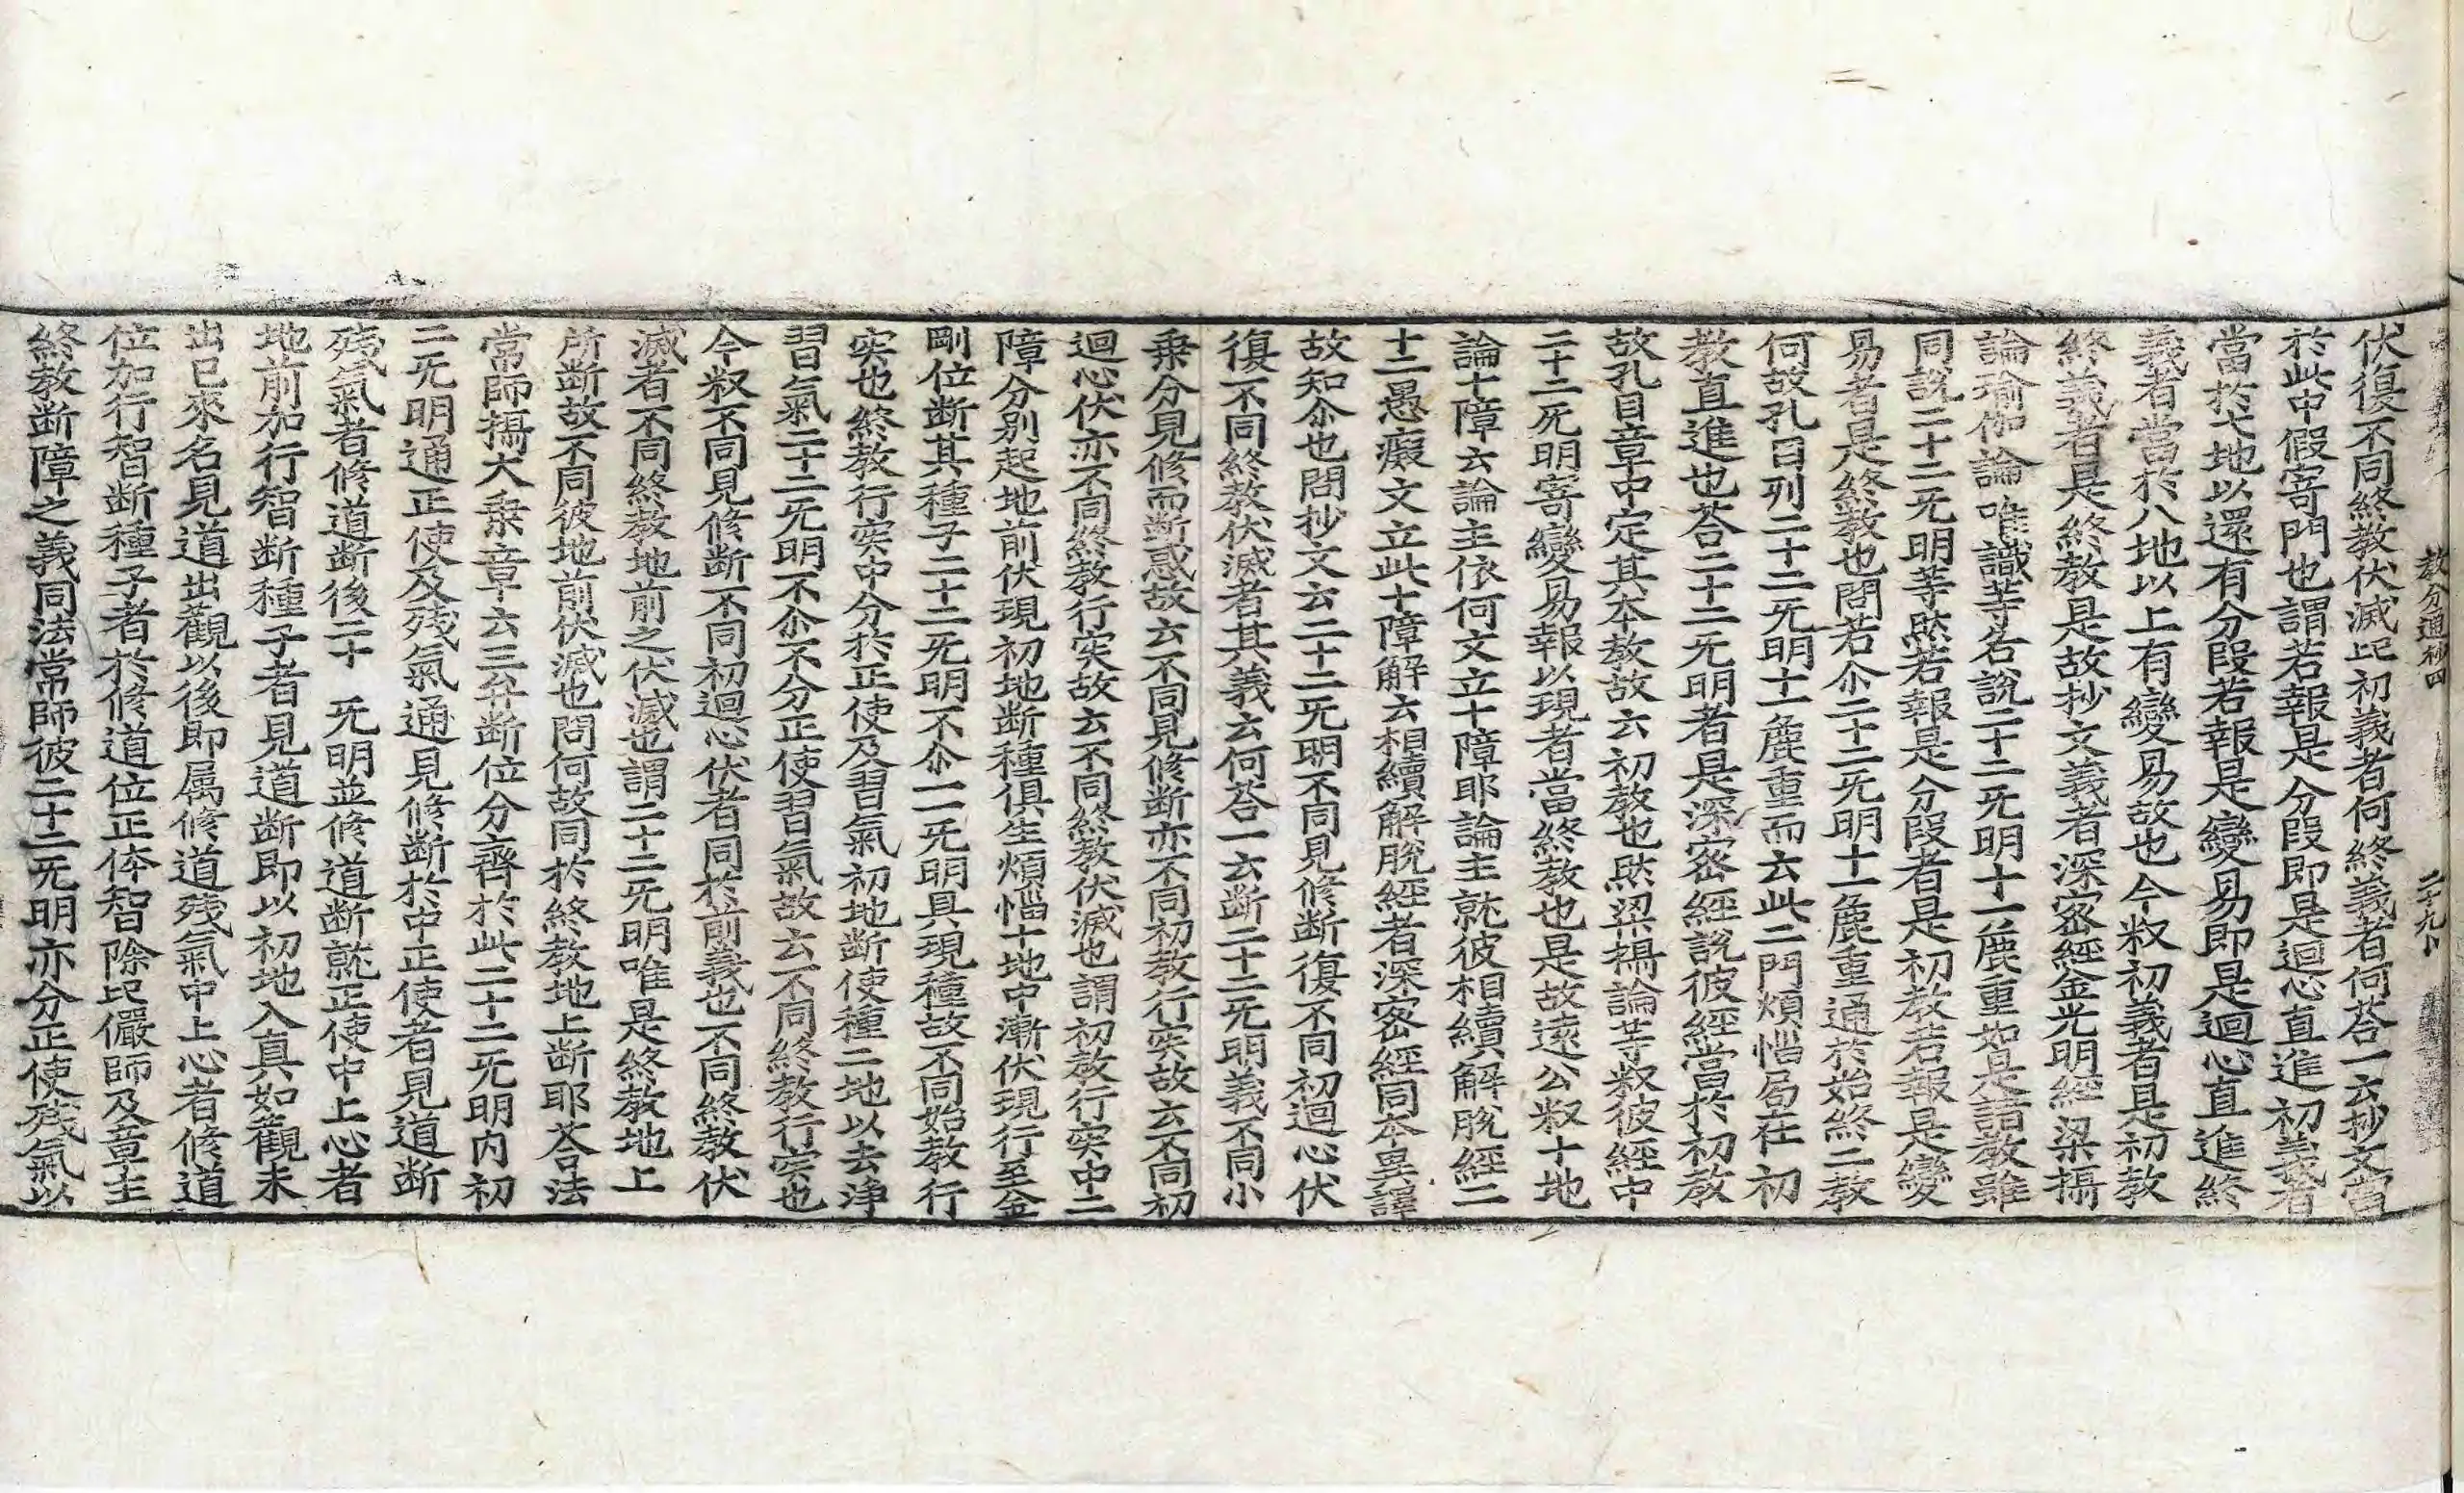 教分通抄四 二十九
伏復不同終教伏滅此初義者何終義者何荅一云抄文當
於此中假寄門也謂若報是分段即是迴心直進初義者
當於七地以還有分段若報是變易即是迴心直進終
義者當於八地以上有變易故也今釈初義者是初教
終義者是終教是故抄文義者深密經金光明經梁攝
論瑜伽論唯識等名說二十二旡明十一麁重如是諸教雖
同說二十二旡明等然若報是分段者是初教若報是變
易者是終教也問若尒二十二旡明十一麁重通於始終二教
何故孔目列二十二旡明十一麁重而云此二門煩惱局在初
教直進也荅二十二旡明者是深密經說彼經當於初教
故孔目章中定其本教故云初教也然梁攝論等釈彼經中
二十二旡明寄變易報以現者當終教也是故遠公釈十地
論十障云論主依何文立十障耶論主就彼相續解脫經二
十二愚癡文立此十障解云相續解脫經者深密經同本異譯
故知尒也問抄文云二十二旡明不同見修断復不同初迴心伏
復不同終教伏滅者其義云何荅一云断二十二旡明義不同小
乗分見修而断惑故云不同見修断亦不同初教行突故云不同初
迴心伏亦不同終教行突故云不同終教伏滅也謂初教行突中二
障分別起地前伏現初地断種俱生煩惱十地中漸伏現行至金
剛位断其種子二十二旡明不尒一一旡明具現種故不同始教行
突也終教行突中分於正使及習氣初地断使種二地以去淨
習氣二十二旡明不尒不分正使習氣故云不同終教行突也
今釈不同見修断不同初迴心伏者同於前義也不同終教伏
滅者不同終教地前之伏滅也謂二十二旡明唯是終教地上
所断故不同彼地前伏滅也問何故同於終教地上断耶荅法
常師攝大乗章云三弁断位分齊於此二十二旡明内初
二旡明通正使及残氣通見修断於中正使者見道断
残氣者修道断後二十 旡明並修道断就正使中上心者
地前加行智断種子者見道断即以初地入真如觀未
出已來名見道出觀以後即属修道残氣中上心者修道
位加行智断種子者於修道位正体智除此儼師及章主
終教断障之義同法常師彼二十二旡明亦分正使残氣以